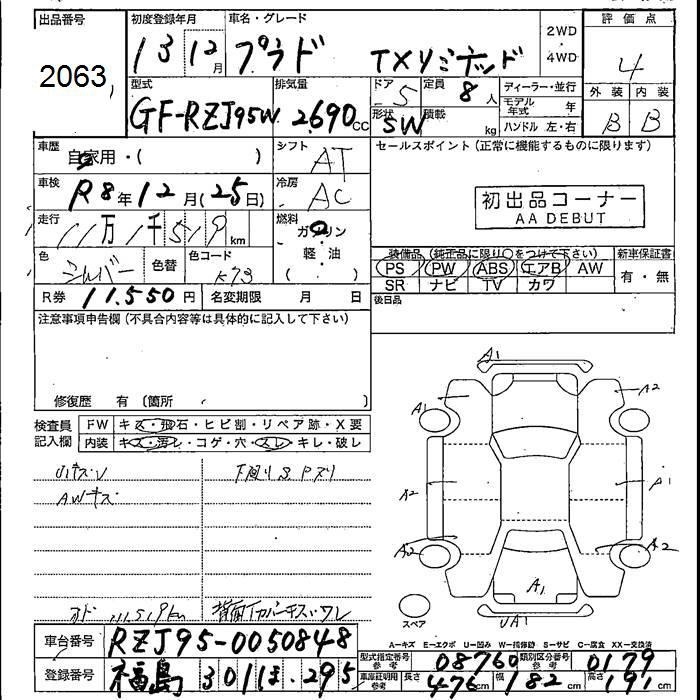 出品番号
2063
初度登録年月
13 12月
車名・グレード
プラド TXリミテッド
2WD
・
4WD
評価点
4
外装 内装
B B
型式
GF-RZJ95W
排気量
2690 cc
ドア
5
定員
8 人
形状
SW
積載
kg
ディーラー・並行
モデル年式 年
ハンドル 左・右
車歴
自家用・( )
シフト
AT
セールスポイント(正常に機能するものに限ります)
初出品コーナー
AA DEBUT
車検
R8年12月(25日)
冷房
AC
走行
11万1千519km
燃料
ガソリン
・
軽・油
( )
色
シルバー
色替
色コード
K73
装備品(純正品に限り○をつけて下さい)
PS PW ABS エアB AW
SR ナビ TV カワ
新車保証書
有・無
R券 11,550円
名変期限 月 日
後日品
注意事項申告欄(不具合内容等は具体的に記入して下さい)
修復歴 有 〔箇所 〕
検査員記入欄
FW キズ・飛石・ヒビ割・リペア跡・X要
内装 キズ・汚レ・コゲ・穴・スレ・キレ・破レ
AWキズ
下廻りS
A1
A1
A2
A2
A1
A2
A2
A1
UA1
スペア
A-キズ E-エクボ U-凹み W-補修跡 S-サビ C-腐食 XX-交換済
車台番号
RZJ95-0050848
登録番号
福島 301 ほ 295
型式指定番号
参考
08760
類別区分番号
参考
0179
車庫証明用
参考
長さ
476cm
幅
182cm
高さ
191cm